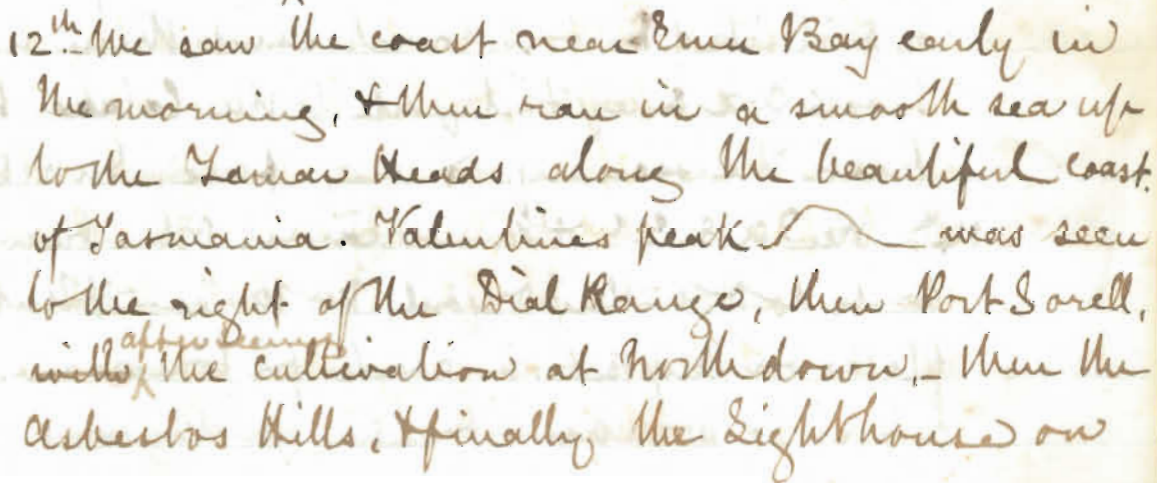 12th We saw the coast near Emu Bay early in
the morning, & then ran in a smooth sea up
to the Tamar Heads along the beautiful coast
of Tasmania. Valentines peak was seen
to the right of the Dial Range, then Port Sorell,
after seeing
with the cultivation at Northdown, - then the
Asbestos Hills, & finally the Lighthouse on